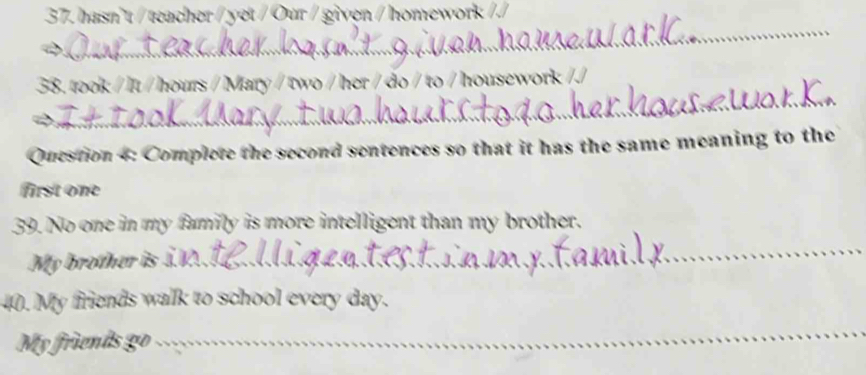 37. hasn't / teacher / yet / Our / given / homework /./
⇒ Our teacher hasn't given homework.
38. took / It / hours / Mary / two / her / do / to / housework /./
⇒ It took Mary two hours to do her housework.
Question 4: Complete the second sentences so that it has the same meaning to the
first one
39. No one in my family is more intelligent than my brother.
My brother is intelligentest in my family
40. My friends walk to school every day.
My friends go